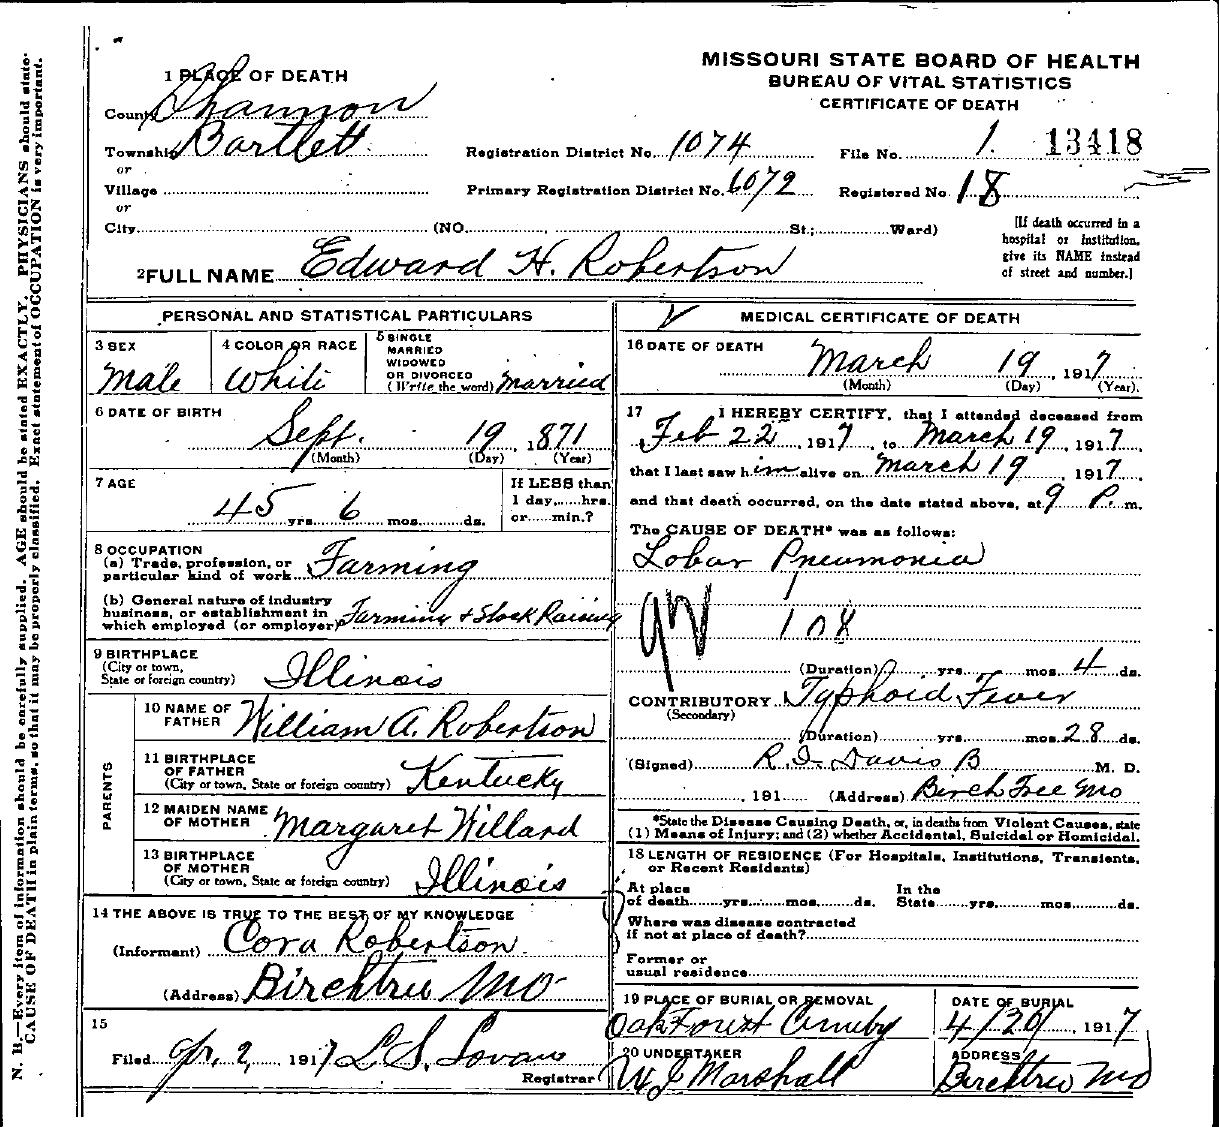 N. B.—Every item of information should be carefully supplied. AGE should be stated EXACTLY. PHYSICIANS should state
CAUSE OF DEATH in plain terms, so that it may be properly classified. Exact statement of OCCUPATION is very important.
MISSOURI STATE BOARD OF HEALTH
BUREAU OF VITAL STATISTICS
CERTIFICATE OF DEATH
1 PLACE OF DEATH
County Shannon
Township Bartlett
or
Village
or
City (NO. St.; Ward)
Registration District No. 1074
Primary Registration District No. 6072
File No. 1. 13418
Registered No. 18
[If death occurred in a
hospital or institution,
give its NAME instead
of street and number.]
2 FULL NAME Edward H. Robertson
PERSONAL AND STATISTICAL PARTICULARS
3 SEX
Male
4 COLOR OR RACE
White
5 SINGLE
MARRIED
WIDOWED
OR DIVORCED
(Write the word) Married
6 DATE OF BIRTH
Sept. 19, 1871
(Month) (Day) (Year)
7 AGE
45 yrs. 6 mos. ds.
If LESS than
1 day, hrs.
or min.?
8 OCCUPATION
(a) Trade, profession, or
particular kind of work Farming
(b) General nature of industry
business, or establishment in
which employed (or employer) Farming & Stock Raising
9 BIRTHPLACE
(City or town,
State or foreign country) Illinois
PARENTS
10 NAME OF
FATHER William A. Robertson
11 BIRTHPLACE
OF FATHER
(City or town, State or foreign country) Kentucky
12 MAIDEN NAME
OF MOTHER Margaret Willard
13 BIRTHPLACE
OF MOTHER
(City or town, State or foreign country) Illinois
14 THE ABOVE IS TRUE TO THE BEST OF MY KNOWLEDGE
(Informant) Cora Robertson
(Address) Birchtree Mo
15
Filed Apr. 2, 1917 L. S. Lovan
Registrar
MEDICAL CERTIFICATE OF DEATH
16 DATE OF DEATH
March 19, 1917
(Month) (Day) (Year)
17 I HEREBY CERTIFY, that I attended deceased from
Feb 22, 1917, to March 19, 1917,
that I last saw him alive on March 19, 1917,
and that death occurred, on the date stated above, at 9 P. m.
The CAUSE OF DEATH* was as follows:
Lobar Pneumonia
1
92 108
(Duration) yrs. mos. 4 ds.
CONTRIBUTORY Typhoid Fever
(Secondary)
(Duration) yrs. mos. 28 ds.
(Signed) Davis M. D.
, 191 (Address) Birch Tree Mo
*State the Disease Causing Death, or, in deaths from Violent Causes, state
(1) Means of Injury; and (2) whether Accidental, Suicidal or Homicidal.
18 LENGTH OF RESIDENCE (For Hospitals, Institutions, Transients,
or Recent Residents)
At place
of death yrs. mos. ds.
In the
State yrs. mos. ds.
Where was disease contracted
if not at place of death?
Former or
usual residence
19 PLACE OF BURIAL OR REMOVAL
Oak Forest Cemetery
DATE OF BURIAL
4/20/, 1917
20 UNDERTAKER
W J Marshall
ADDRESS
Birchtree Mo